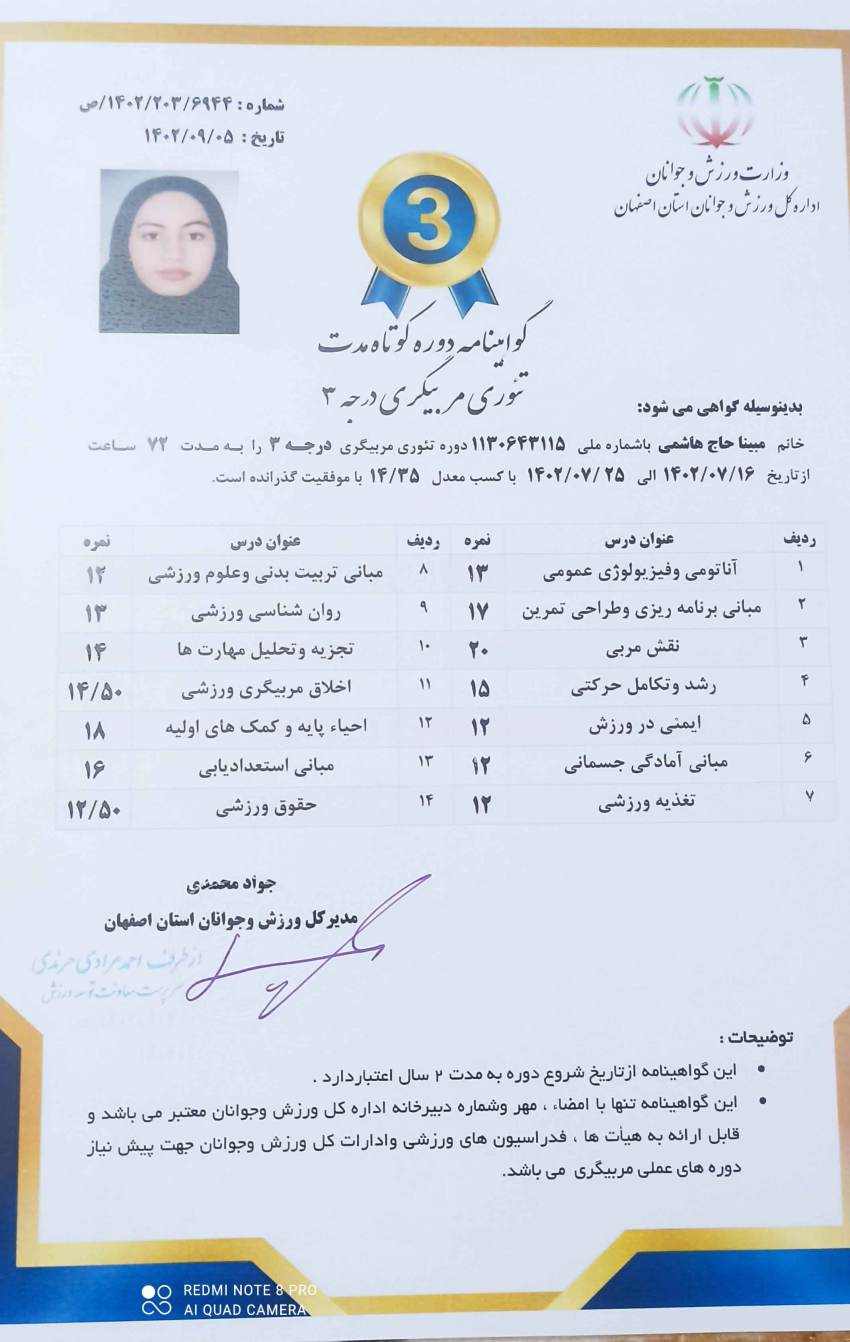 شماره : ۱۴۰۲/۲۰۳/۶۹۴۴/ص
تاریخ : ۱۴۰۲/۰۹/۰۵
وزارت ورزش و جوانان
اداره کل ورزش و جوانان استان اصفهان
3
گواهینامه دوره کوتاه مدت
تئوری مربیگری درجه ۳
بدینوسیله گواهی می شود:
خانم مبینا حاج هاشمی باشماره ملی ۱۱۳۰۶۴۳۱۱۵ دوره تئوری مربیگری درجه ۳ را به مدت ۷۲ ساعت
ازتاریخ ۱۴۰۲/۰۷/۱۶ الی ۱۴۰۲/۰۷/۲۵ با کسب معدل ۱۴/۳۵ با موفقیت گذرانده است.
ردیف عنوان درس نمره ردیف عنوان درس نمره
۱ آناتومی وفیزیولوژی عمومی ۱۳ ۸ مبانی تربیت بدنی وعلوم ورزشی ۱۲
۲ مبانی برنامه ریزی وطراحی تمرین ۱۷ ۹ روان شناسی ورزشی ۱۳
۳ نقش مربی ۲۰ ۱۰ تجزیه وتحلیل مهارت ها ۱۴
۴ رشد وتکامل حرکتی ۱۵ ۱۱ اخلاق مربیگری ورزشی ۱۴/۵۰
۵ ایمنی در ورزش ۱۲ ۱۲ احیاء پایه و کمک های اولیه ۱۸
۶ مبانی آمادگی جسمانی ۱۲ ۱۳ مبانی استعدادیابی ۱۶
۷ تغذیه ورزشی ۱۲ ۱۴ حقوق ورزشی ۱۲/۵۰
جواد محمدی
مدیرکل ورزش وجوانان استان اصفهان
ازطرف احمد مرادی
سرپرست معاونت توسعه ورزش
توضیحات :
این گواهینامه ازتاریخ شروع دوره به مدت ۲ سال اعتباردارد .
این گواهینامه تنها با امضاء ، مهر وشماره دبیرخانه اداره کل ورزش وجوانان معتبر می باشد و
قابل ارائه به هیأت ها ، فدراسیون های ورزشی وادارات کل ورزش وجوانان جهت پیش نیاز
دوره های عملی مربیگری می باشد.
REDMI NOTE 8 PRO
AI QUAD CAMERA